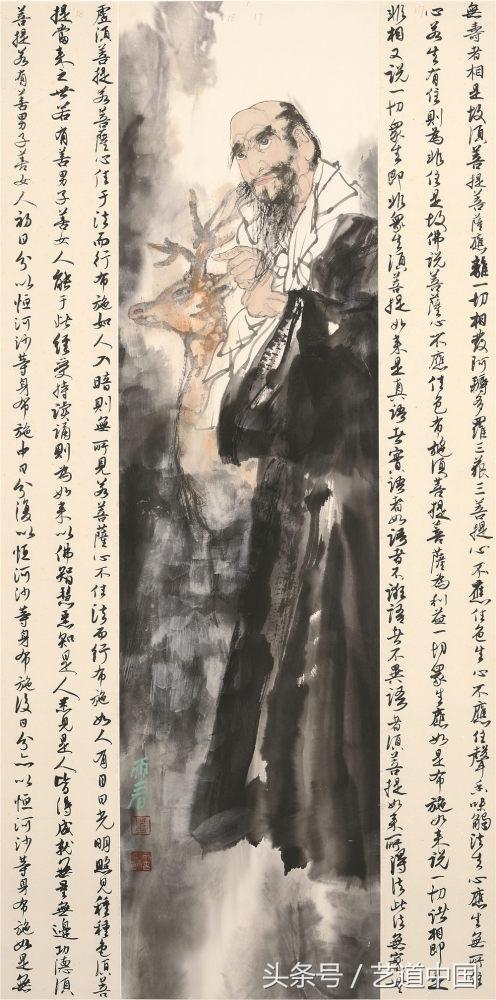 無壽者相是故須菩提菩薩應離一切相發阿耨多羅三藐三菩提心不應住色生心不應住聲香味觸法生心應生無所住
心若生有住則為非住是故佛說菩薩心不應住色布施須菩提菩薩為利益一切衆生應如是布施如来說一切諸相即是
非相又说一切衆生即非衆生須菩提如来是真語者實語者如語者不誑語者不異語者須菩提如来所得法此法無實無
虛須菩提若菩薩心住于法而行布施如人入暗則無所見若菩薩心不住法而行布施如人有目日光明照見種種色須菩
提當来之世若有善男子善女人能于此經受持读誦則為如来以佛智慧悉知是人悉見是人皆得成就無量無邊功德須
菩提若有善男子善女人初日分以恒河沙等身布施中日分復以恒河沙等身布施後日分亦以恒河沙等身布施如是無
头条号 / 艺道中国